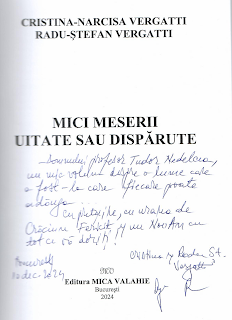 CRISTINA-NARCISA VERGATTI
RADU-ȘTEFAN VERGATTI
MICI MESERII
UITATE SAU DISPĂRUTE
- Domnului profesor Tudor Nedelcea,
un mic volum despre o lume care
a fost - la care fiecare poate
adăuga...
Cu prețuire, cu urarea de
Crăciun Fericit și un Nou An cu
tot ce vă doriți!
București
dec. 2024
Cristina și Radu Șt.
Vergatti
Editura MICA VALAHIE
București
2024